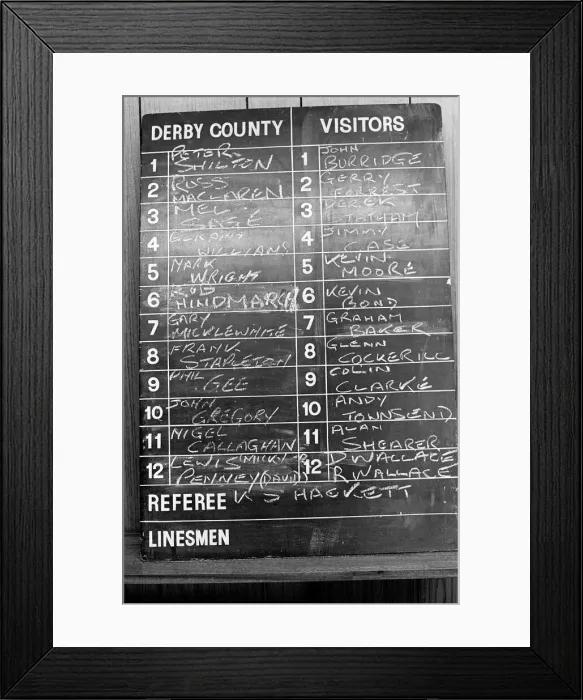 DERBY COUNTY VISITORS
1 PETER SHILTON 1 JOHN BURRIDGE
2 ROSS MACLAREN 2 GERRY FORREST
3 MEL SAGE 3 DEREK STATHAM
4 GERAINT WILLIAMS 4 JIMMY CASE
5 MARK WRIGHT 5 KEVIN MOORE
6 ROB HINDMARCH 6 KEVIN BOND
7 GARY MICKLEWHITE 7 GRAHAM BAKER
8 FRANK STAPLETON 8 GLENN COCKERILL
9 PHIL GEE 9 COLIN CLARKE
10 JOHN GREGORY 10 ANDY TOWNSEND
11 NIGEL CALLAGHAN 11 ALAN SHEARER
12 LEWIS MICKY PENNEY DAVID 12 D WALLACE R WALLACE
REFEREE K S HACKETT
LINESMEN